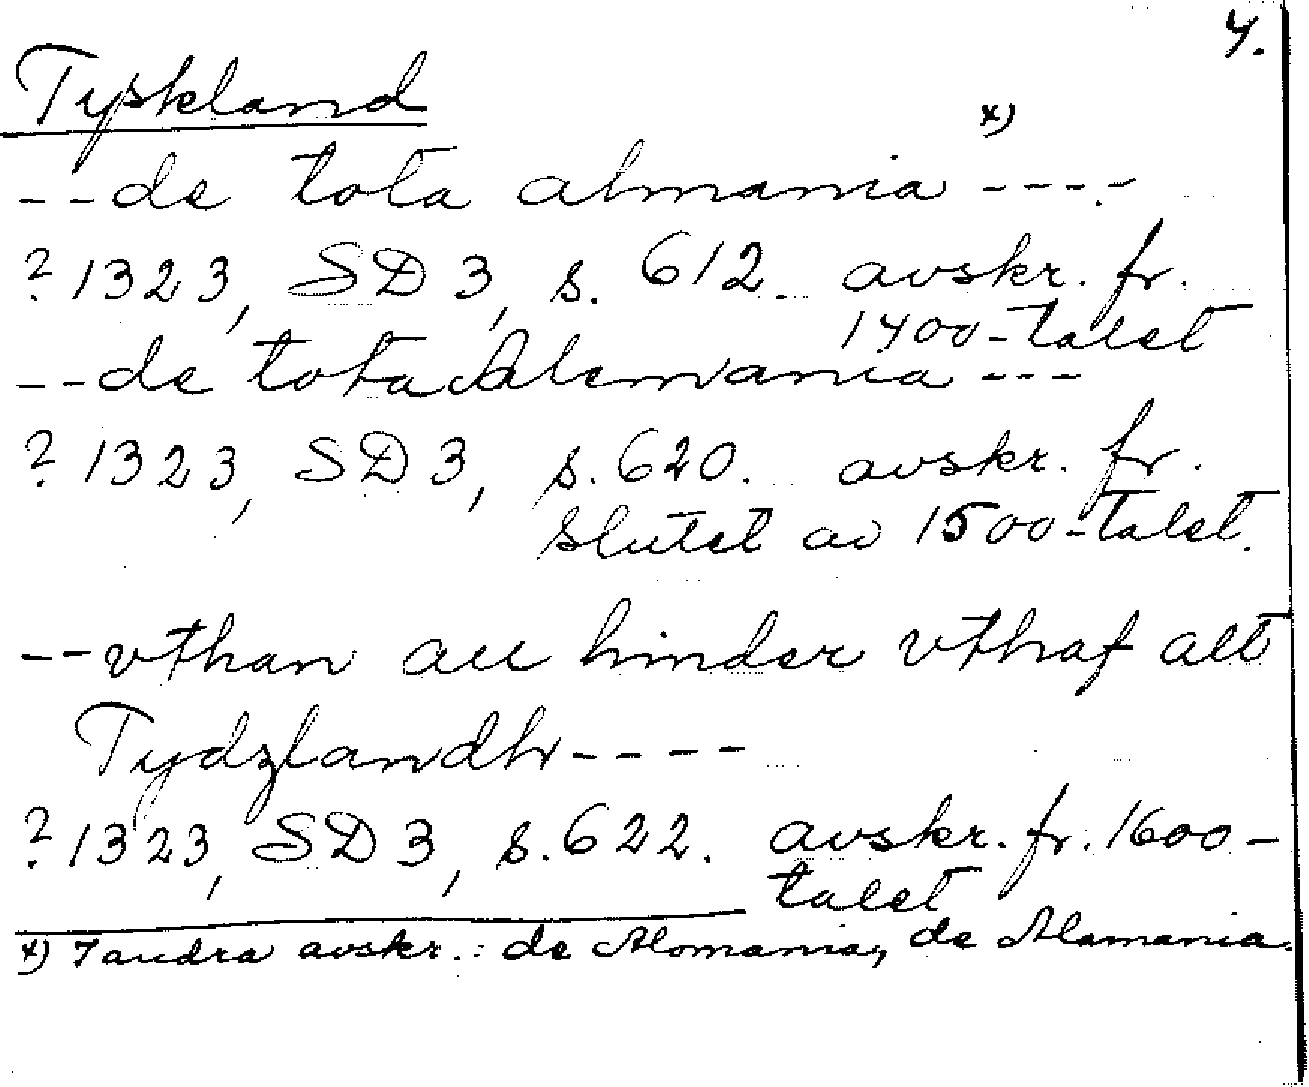 4.
Tyskland
x)
--de tota almania ----
? 1323, SD 3, s. 612. avskr. fr.
1400-talet
--de tota Alemania ---
? 1323, SD 3, s. 620. avskr. fr.
slutet av 1500-talet.
--vthan all hinder vthaf alt
Tydzlandh----
? 1323, SD 3, s. 622. avskr. fr. 1600-
talet
x) I andra avskr.: de Alomania, de Alamania.